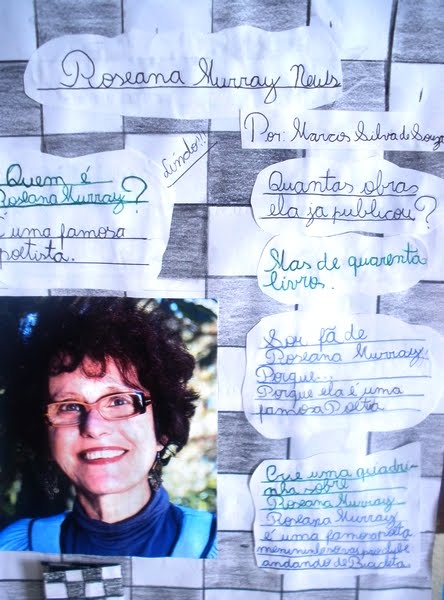 Roseana Murray News
Por: Marcos Silva de Souza
Lindo!!
Quem é
Roseana Murray?
É uma famosa
poetista.
Quantas obras
ela já publicou?
Mas de quarenta
livros.
Sor fã de
Roseana Murray!
Porque...
Porque ela é uma
famosa Poetia
Crie uma quadri-
nha sobre
Roseana Murray
Roseana Murray
é uma famosa poeta
andando de Bicicleta